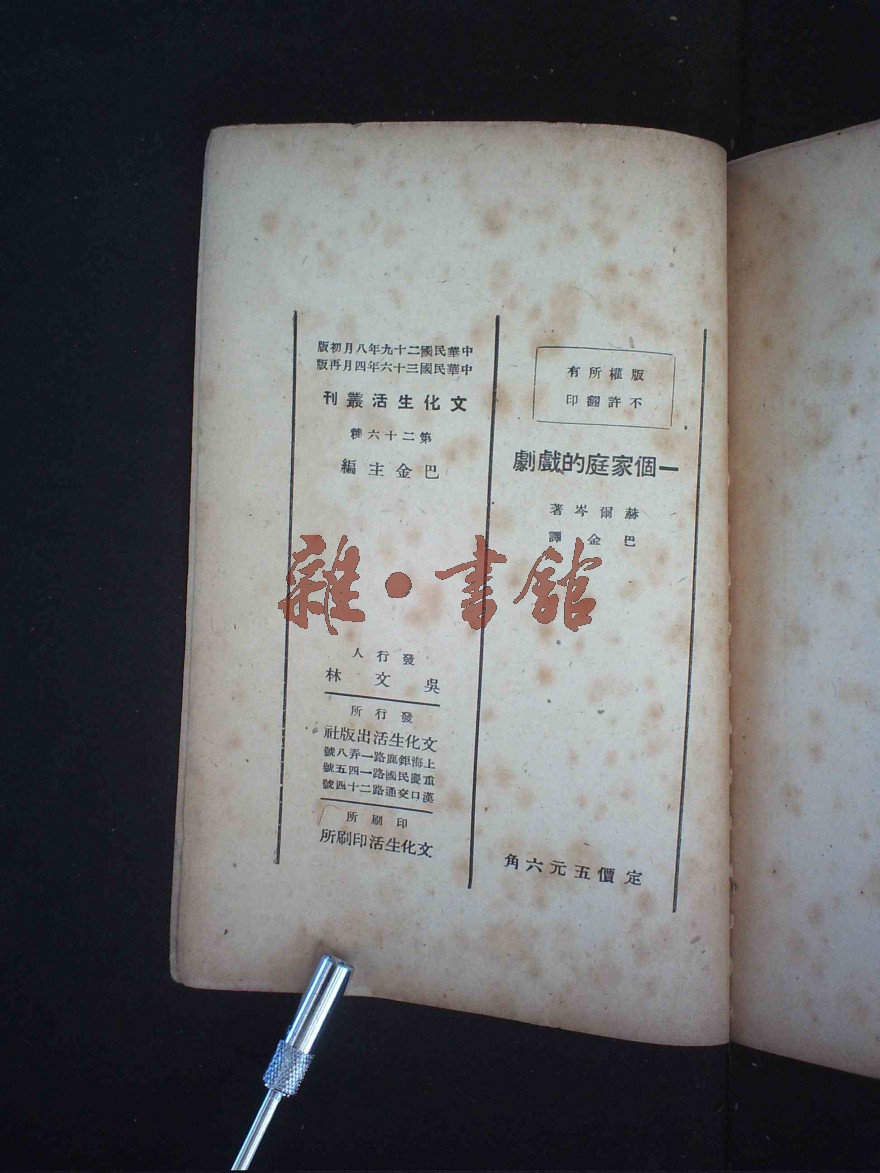 版權所有
不許翻印
一個家庭的戲劇
赫爾岑著
巴金譯
定價五元六角
中華民國二十九年八月初版
中華民國三十六年四月再版
文化生活叢刊
第二十六種
巴金主編
發行人
吳文林
發行所
文化生活出版社
上海鉅鹿路一弄八號
重慶民國路一四五號
漢口交通路二十四號
印刷所
文化生活印刷所
雜·書館